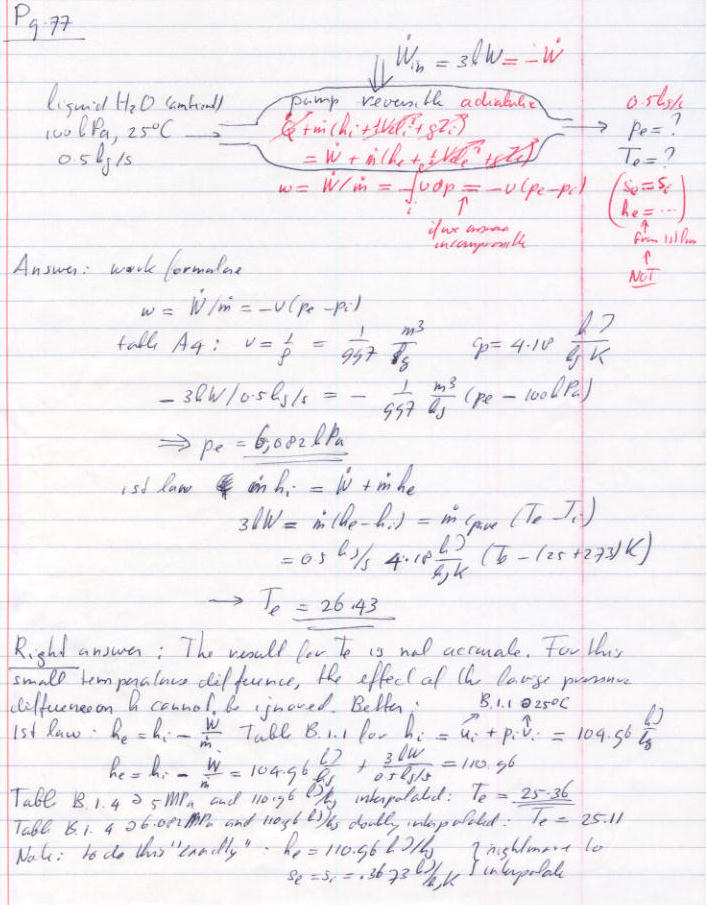 Pg.77
Ẇin = 3kW = -Ẇ
liquid H2O (ambient)
100 kPa, 25°C
0.5 kg/s
pump reversible adiabatic
Q̇ + ṁ(hi + ½Veli² + gZi)
= Ẇ + ṁ(he + ½Vele² + gZe)
w = Ẇ/ṁ = -∫ie v dp = -v(pe-pi)
↑
if we assume
incompressible
0.5 kg/s
pe = ?
Te = ?
(se = si
he = ...)
↑
from 1st law
↑
NOT
Answer: work formulae
w = Ẇ/ṁ = -v(pe-pi)
table A4: v = 1/ρ = 1/997 m³/kg cp = 4.18 kJ/kg K
-3kW/0.5kg/s = - 1/997 m³/kg (pe - 100kPa)
⇒ pe = 6,082 kPa
1st law ṁ hi = Ẇ + ṁ he
3kW = ṁ(he-hi) = ṁ cp,ave (Te-Ti)
= 0.5 kg/s 4.18 kJ/kg K (Te - (25+273)K)
→ Te = 26.43
Right answer: The result for Te is not accurate. For this
small temperature difference, the effect of the large pressure
difference on h cannot be ignored. Better:
B.1.1 @ 25°C
1st law: he = hi - Ẇ/ṁ Table B.1.1 for hi = ui + pi vi = 104.96 kJ/kg
he = hi - Ẇ/ṁ = 104.96 kJ/kg + 3kW/0.5kg/s = 110.96
Table B.1.4 @ 5 MPa and 110.96 kJ/kg interpolated: Te = 25.36
Table B.1.4 @ 6.082 MPa and 110.96 kJ/kg doubly interpolated: Te = 25.11
Note: to do this "exactly": he = 110.96 kJ/kg } nightmare to
se = si = .3673 kJ/kg K } interpolate